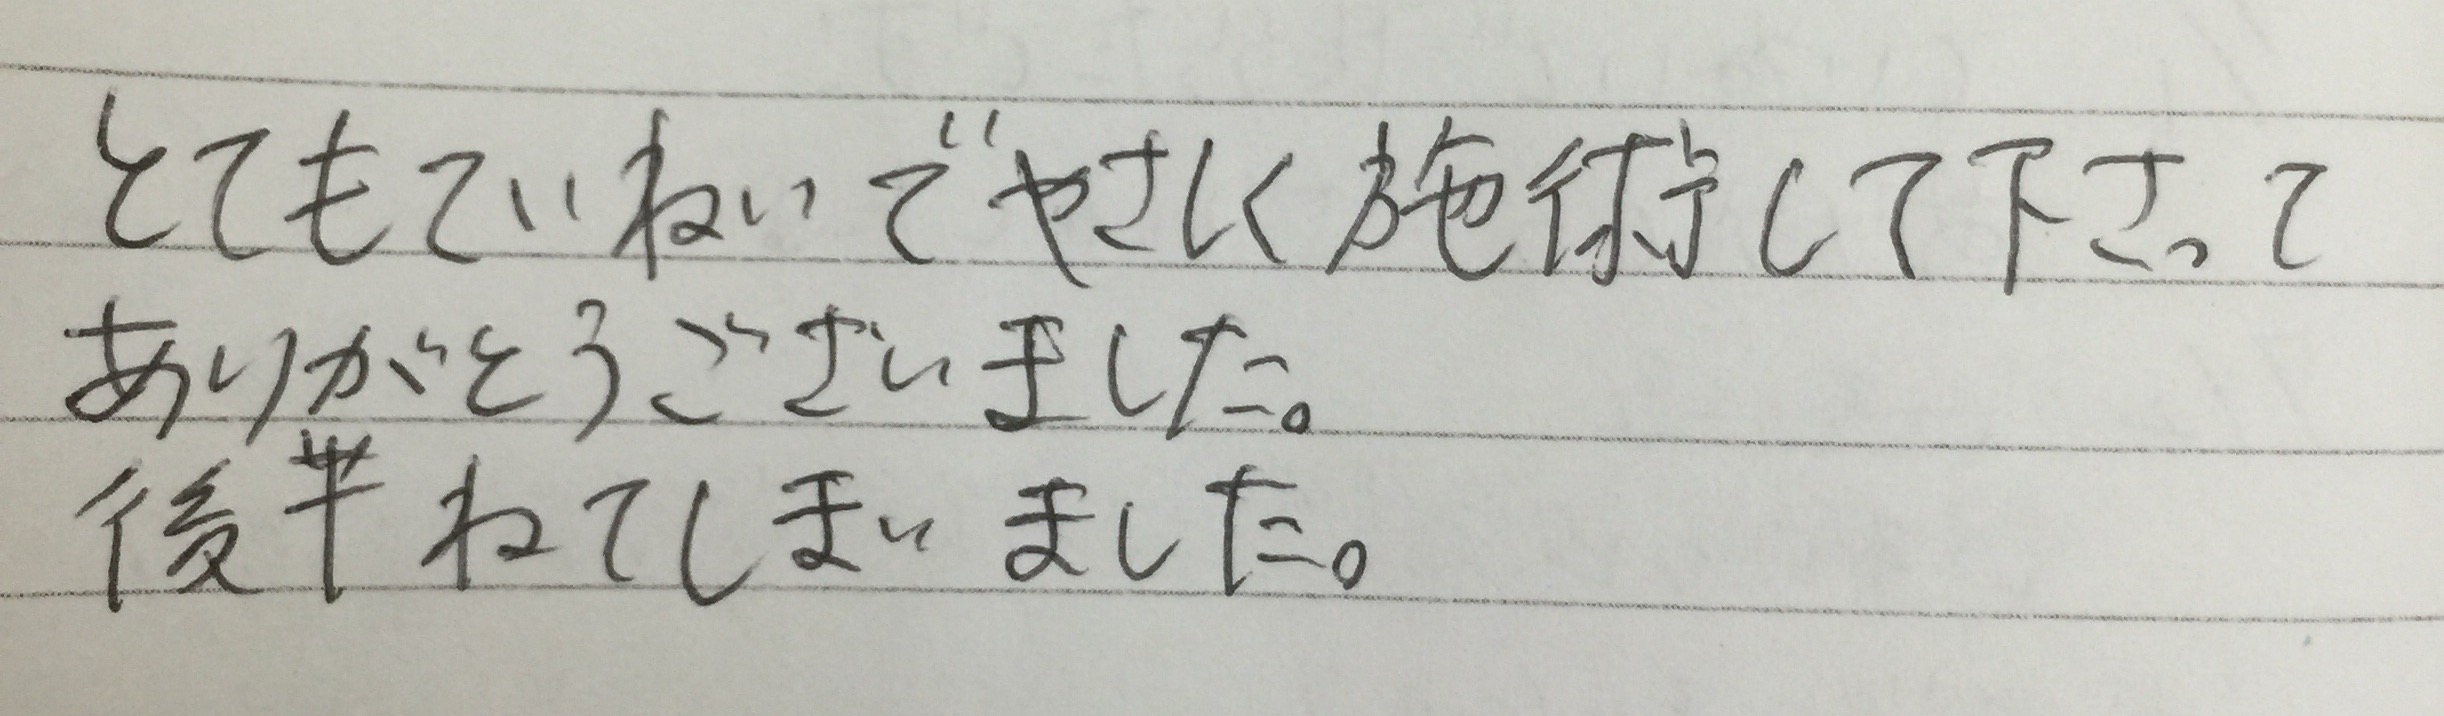 とてもていねいでやさしく施術して下さって
ありがとうございました。
後半ねてしまいました。